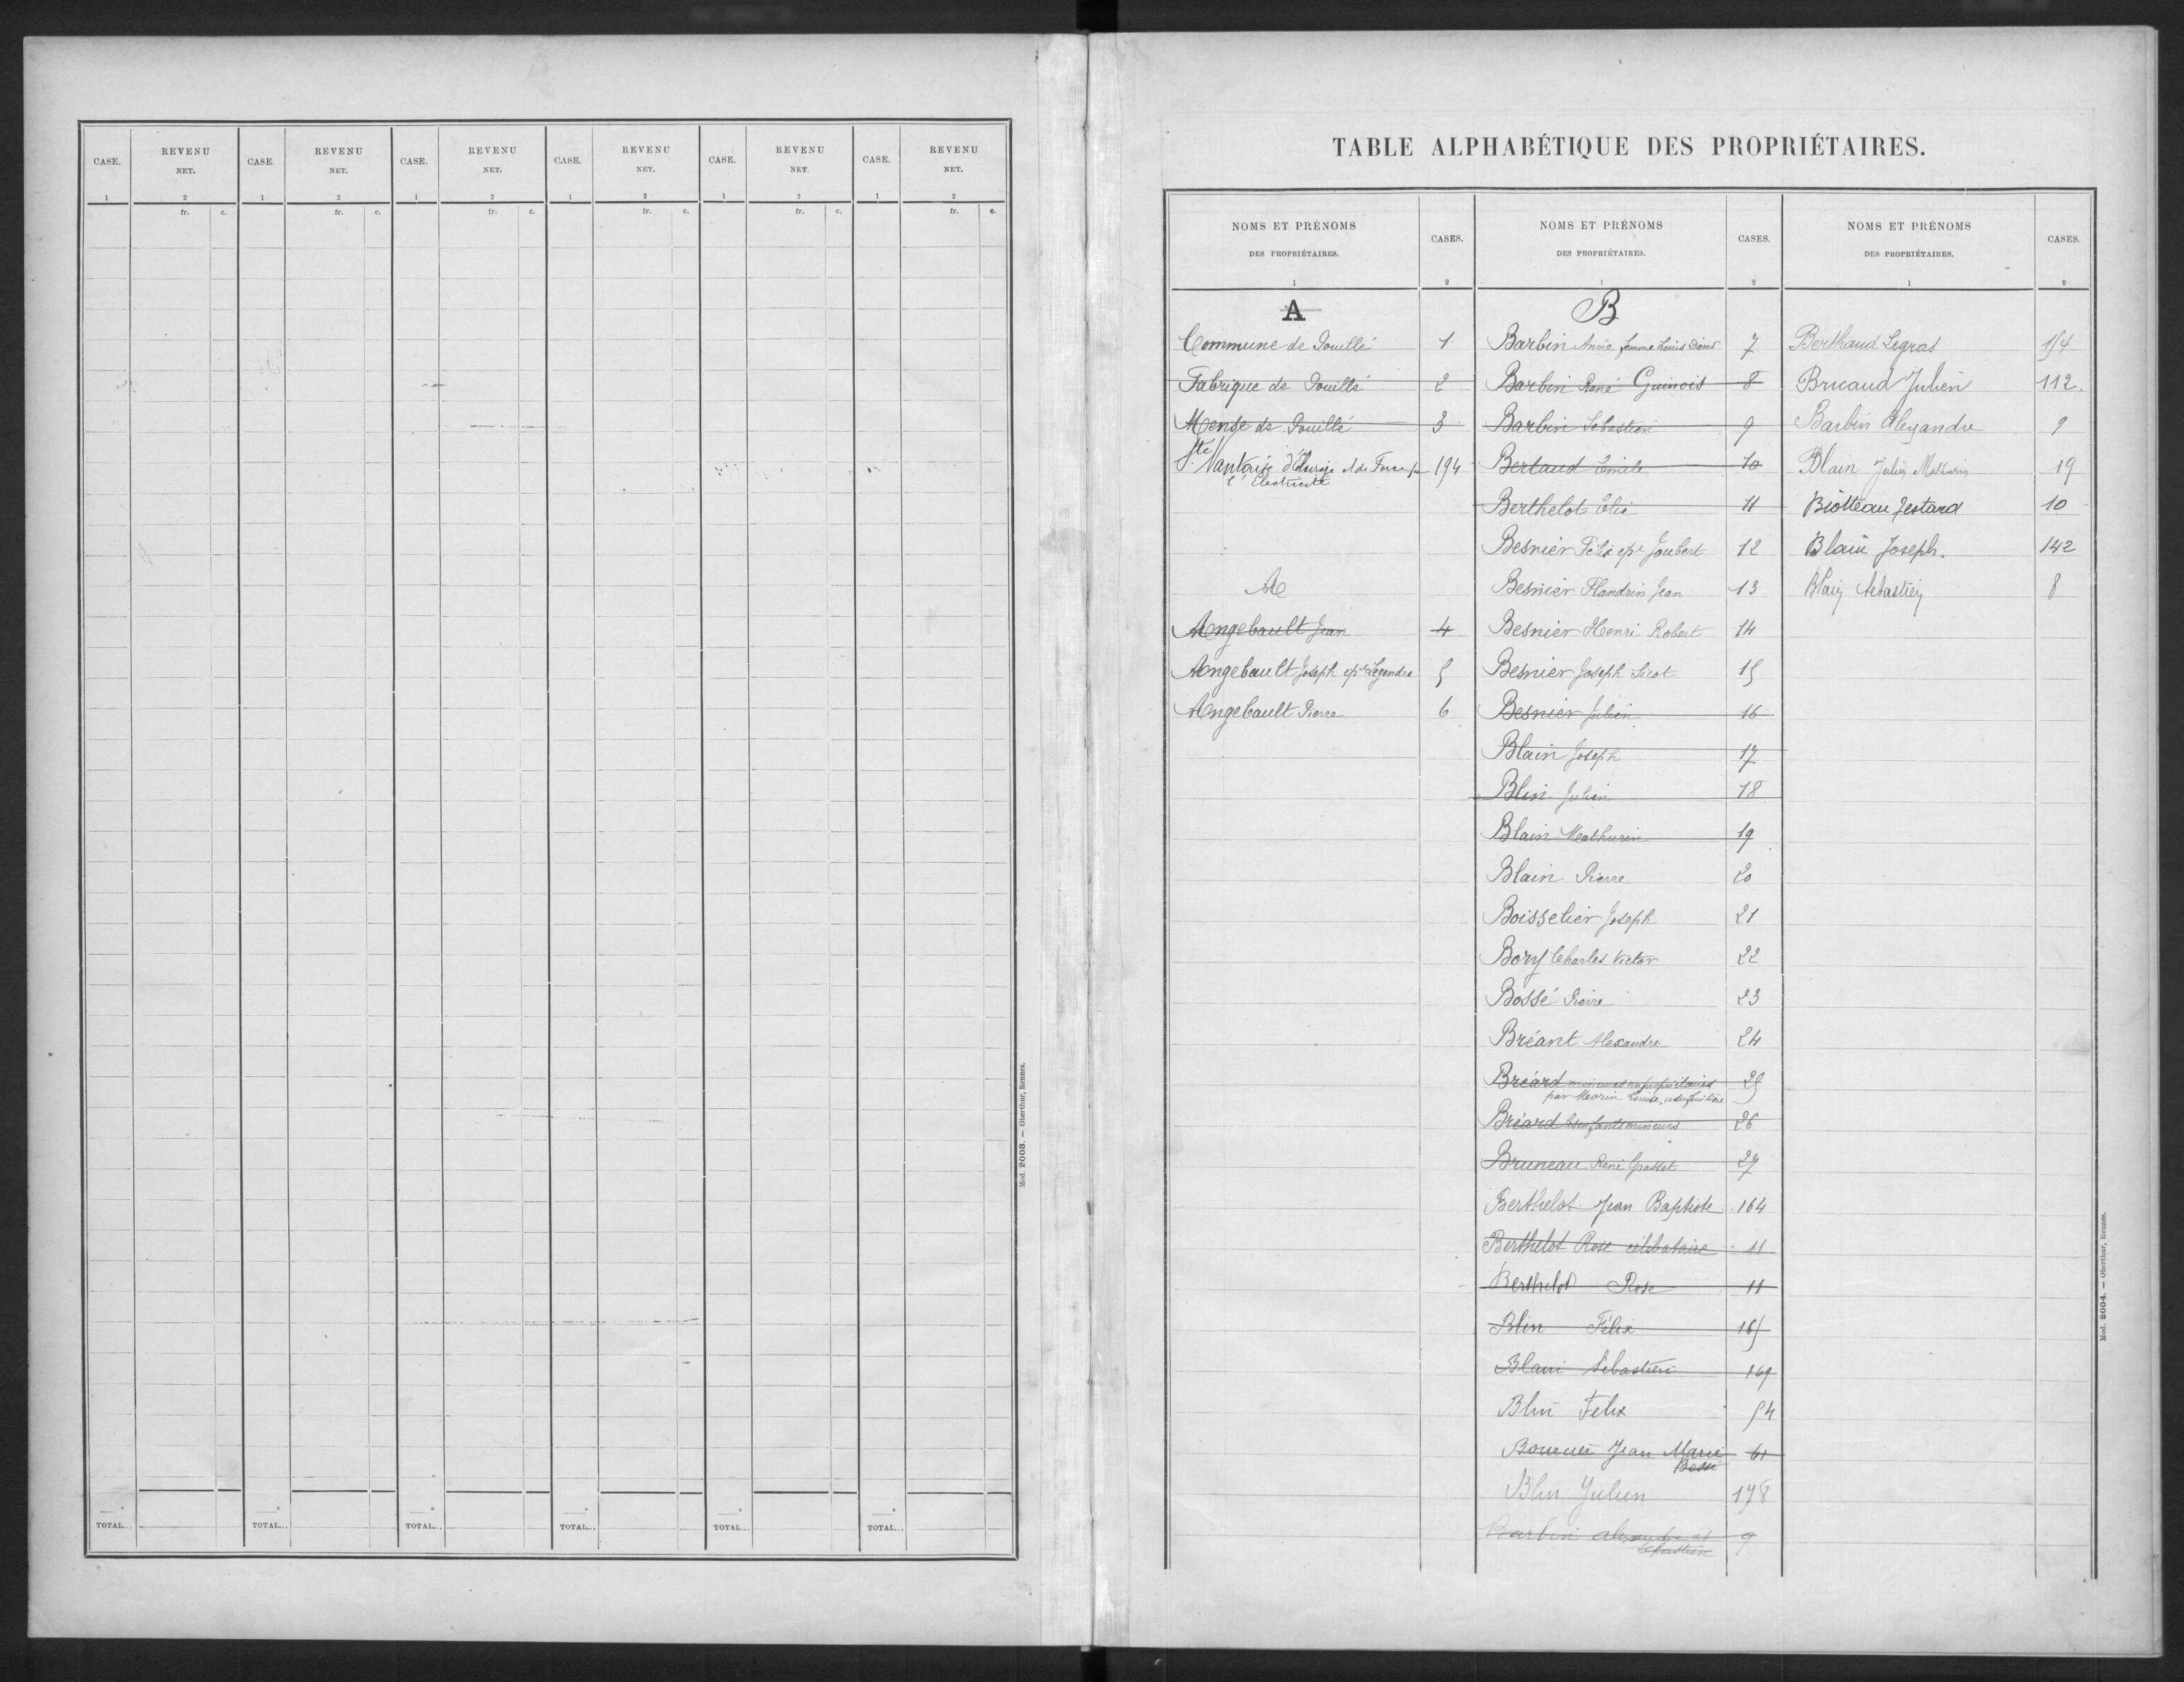 CASE. REVENU NET. CASE. REVENU NET. CASE. REVENU NET. CASE. REVENU NET. CASE. REVENU NET. CASE. REVENU NET.
1 2 1 2 1 2 1 2 1 2 1 2
fr. c. fr. c. fr. c. fr. c. fr. c. fr. c.
TOTAL... TOTAL... TOTAL... TOTAL... TOTAL... TOTAL...
Mod. 2003. — Oberthur, Rennes.
TABLE ALPHABÉTIQUE DES PROPRIÉTAIRES.
NOMS ET PRÉNOMS
DES PROPRIÉTAIRES.
CASES.
1 2
A
Commune de Pouillé 1
Fabrique de Pouillé 2
Mense de Pouillé 3
Sté Nantaise d'Éclairage et de Force pr 194
l'Électricité
A
Angebault Jean 4
Angebault Joseph epx Legendre 5
Angebault Pierre 6
NOMS ET PRÉNOMS
DES PROPRIÉTAIRES.
CASES.
1 2
B
Barbin Anne femme Louis 7
Barbin René Guinois 8
Barbin Sébastien 9
Bertaud Emile 10
Berthelot Elie 11
Besnier Félix epx Joubert 12
Besnier Flandrin Jean 13
Besnier Henri Robert 14
Besnier Joseph Sicot 15
Besnier Julien 16
Blain Joseph 17
Blin Julien 18
Blain Mathurin 19
Blain Pierre 20
Boisselier Joseph 21
Bory Charles Victor 22
Bossé Pierre 23
Bréant Alexandre 24
Bréard mineurs nu propriétaires 25
par Louise, usufruitière
Bréard les enfants mineurs 26
Bruneau René Grasset 27
Berthelot Jean Baptiste 164
Berthelot Rose célibataire 11
Berthelot Rose 11
Blin Félix 165
Blain Sébastien 169
Blin Felix 54
Jean Marie 61
Bessé
Blin Julien 178
Barbin Alexandre et 9
Sébastien
NOMS ET PRÉNOMS
DES PROPRIÉTAIRES.
CASES.
1 2
Berthaud Legras 154
Bricaud Julien 112.
Barbin Alexandre 9
Blain Julien Mathurin 19
Biotteau Jestard 10
Blain Joseph. 142
Blain Sébastien 8
Mod. 2004. — Oberthur, Rennes.